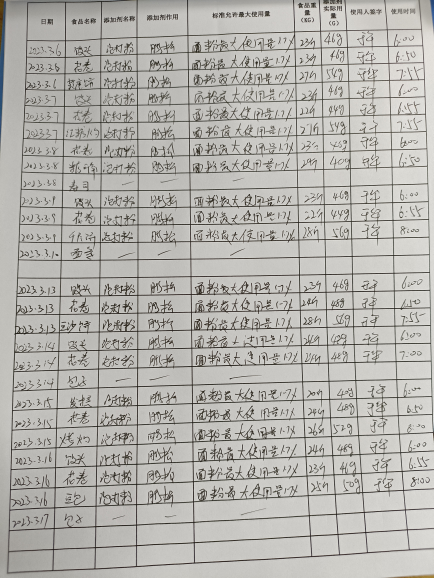 日期 食品名称 添加剂名称 添加剂作用 标准允许最大使用量 食品重量(KG) 添加剂实际用量(G) 使用人签字 使用时间
2023.3.6 馒头 泡打粉 膨松 面粉最大使用量1.7% 23斤 46g 6:00
2023.3.6 花卷 泡打粉 膨松 面粉最大使用量1.7% 23斤 46g 6:50
2023.3.6 泡打粉 膨松 面粉最大使用量1.7% 27斤 54g 7:55
2023.3.7 馒头 泡打粉 膨松 面粉最大使用量1.7% 23斤 46g 6:00
2023.3.7 花卷 泡打粉 膨松 面粉最大使用量1.7% 22斤 44g 6:55
2023.3.7 泡打粉 膨松 面粉最大使用量1.7% 27斤 54g 7:55
2023.3.8 花卷 泡打粉 膨松 面粉最大使用量1.7% 23斤 46g 6:00
2023.3.8 泡打粉 膨松 面粉最大使用量1.7% 40g 6:50
2023.3.8 — — —
2023.3.9 馒头 泡打粉 膨松 面粉最大使用量1.7% 23斤 46g 6:00
2023.3.9 花卷 泡打粉 膨松 面粉最大使用量1.7% 22斤 44g 6:55
2023.3.9 泡打粉 膨松 面粉最大使用量1.7% 28斤 56g 8:00
2023.3.10 — — —
2023.3.13 馒头 泡打粉 膨松 面粉最大使用量1.7% 23斤 46g 6:00
2023.3.13 花卷 泡打粉 膨松 面粉最大使用量1.7% 24斤 48g 6:50
2023.3.13 泡打粉 膨松 面粉最大使用量1.7% 28斤 56g 7:55
2023.3.14 馒头 泡打粉 膨松 面粉最大使用量1.7% 24斤 48g 6:00
2023.3.14 花卷 泡打粉 膨松 面粉最大使用量1.7% 24斤 48g 7:00
2023.3.14 包子 — — —
2023.3.15 发糕 泡打粉 膨松 面粉最大使用量1.7% 20斤 40g 6:00
2023.3.15 花卷 泡打粉 膨松 面粉最大使用量1.7% 24斤 48g 6:50
2023.3.15 泡打粉 膨松 面粉最大使用量1.7% 26斤 52g 6:00
2023.3.16 馒头 泡打粉 膨松 面粉最大使用量1.7% 24斤 48g 6:00
2023.3.16 花卷 泡打粉 膨松 面粉最大使用量1.7% 23斤 46g 6:55
2023.3.16 泡打粉 膨松 面粉最大使用量1.7% 25斤 50g 8:00
2023.3.17 包子 — — —